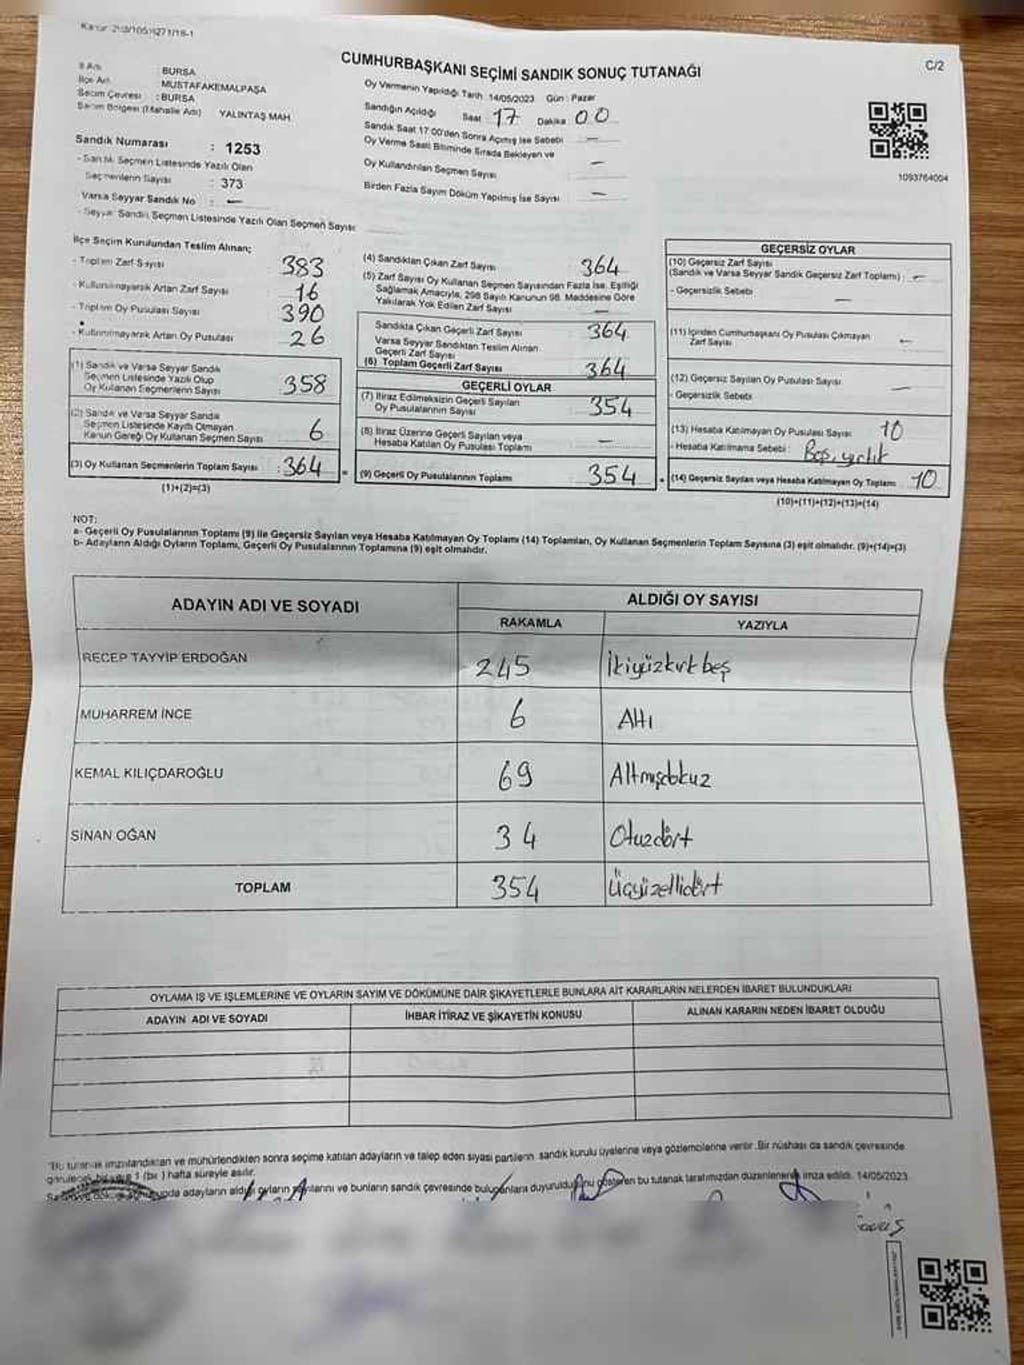 C/2
CUMHURBAŞKANI SEÇİMİ SANDIK SONUÇ TUTANAĞI
İl Adı : BURSA
İlçe Adı : MUSTAFAKEMALPAŞA
Seçim Çevresi : BURSA
Seçim Bölgesi (Mahalle Adı) YALINTAŞ MAH.
Sandık Numarası : 1253
- Sandık Seçmen Listesinde Yazılı Olan
Seçmenlerin Sayısı : 373
- Varsa Seyyar Sandık No : —
- Seyyar Sandık Seçmen Listesinde Yazılı Olan Seçmen Sayısı
Oy Vermenin Yapıldığı Tarih : 14/05/2023 Gün : Pazar
Sandığın Açıldığı Saat 17 Dakika 00
Sandık Saat 17:00'den Sonra Açılmış İse Sebebi —
Oy Verme Saati Bitiminde Sırada Bekleyen ve
Oy Kullandırılan Seçmen Sayısı —
Birden Fazla Sayım Döküm Yapılmış İse Sayısı —
1093764004
İlçe Seçim Kurulundan Teslim Alınan;
- Toplam Zarf Sayısı 383
- Kullanılmayarak Artan Zarf Sayısı 16
- Toplam Oy Pusulası Sayısı 390
- Kullanılmayarak Artan Oy Pusulası 26
(1) Sandık ve Varsa Seyyar Sandık
Seçmen Listesinde Yazılı Olup
Oy Kullanan Seçmenlerin Sayısı 358
(2) Sandık ve Varsa Seyyar Sandık
Seçmen Listesinde Kayıtlı Olmayan
Kanun Gereği Oy Kullanan Seçmen Sayısı 6
(3) Oy Kullanan Seçmenlerin Toplam Sayısı : 364
(1)+(2)=(3)
=
(4) Sandıktan Çıkan Zarf Sayısı 364
(5) Zarf Sayısı Oy Kullanan Seçmen Sayısından Fazla İse, Eşitliği
Sağlamak Amacıyla, 298 Sayılı Kanunun 98. Maddesine Göre
Yakılarak Yok Edilen Zarf Sayısı —
Sandıkta Çıkan Geçerli Zarf Sayısı 364
Varsa Seyyar Sandıktan Teslim Alınan
Geçerli Zarf Sayısı
(6) Toplam Geçerli Zarf Sayısı 364
GEÇERLİ OYLAR
(7) İtiraz Edilmeksizin Geçerli Sayılan
Oy Pusulalarının Sayısı 354
(8) İtiraz Üzerine Geçerli Sayılan veya
Hesaba Katılan Oy Pusulası Toplamı —
(9) Geçerli Oy Pusulalarının Toplamı 354
GEÇERSİZ OYLAR
(10) Geçersiz Zarf Sayısı
(Sandık ve Varsa Seyyar Sandık Geçersiz Zarf Toplamı) : —
- Geçersizlik Sebebi —
(11) İçinden Cumhurbaşkanı Oy Pusulası Çıkmayan
Zarf Sayısı —
(12) Geçersiz Sayılan Oy Pusulası Sayısı —
- Geçersizlik Sebebi
(13) Hesaba Katılmayan Oy Pusulası Sayısı 10
- Hesaba Katılmama Sebebi : Boş, yırtık
(14) Geçersiz Sayılan veya Hesaba Katılmayan Oy Toplamı 10
(10)+(11)+(12)+(13)=(14)
NOT:
a- Geçerli Oy Pusulalarının Toplamı (9) ile Geçersiz Sayılan veya Hesaba Katılmayan Oy Toplamı (14) Toplamları, Oy Kullanan Seçmenlerin Toplam Sayısına (3) eşit olmalıdır. (9)+(14)=(3)
b- Adayların Aldığı Oyların Toplamı, Geçerli Oy Pusulalarının Toplamına (9) eşit olmalıdır.
ADAYIN ADI VE SOYADI
ALDIĞI OY SAYISI
RAKAMLA YAZIYLA
RECEP TAYYİP ERDOĞAN 245 İkiyüzkırkbeş
MUHARREM İNCE 6 Altı
KEMAL KILIÇDAROĞLU 69 Altmışdokuz
SİNAN OĞAN 34 Otuzdört
TOPLAM 354 Üçyüzellidört
OYLAMA İŞ VE İŞLEMLERİNE VE OYLARIN SAYIM VE DÖKÜMÜNE DAİR ŞİKAYETLERLE BUNLARA AİT KARARLARIN NELERDEN İBARET BULUNDUKLARI
ADAYIN ADI VE SOYADI İHBAR İTİRAZ VE ŞİKAYETİN KONUSU ALINAN KARARIN NEDEN İBARET OLDUĞU
"Bu tutanak imzalandıktan ve mühürlendikten sonra seçime katılan adayların ve talep eden siyasi partilerin, sandık kurulu üyelerine veya gözlemcilerine verilir. Bir nüshası da sandık çevresinde
1 (bir) hafta süreyle asılır.
adayların aldığı oyların ve bunların sandık çevresinde bulunanlara duyurulduğunu gösteren bu tutanak tarafımızdan düzenlenerek imza edildi. 14/05/2023